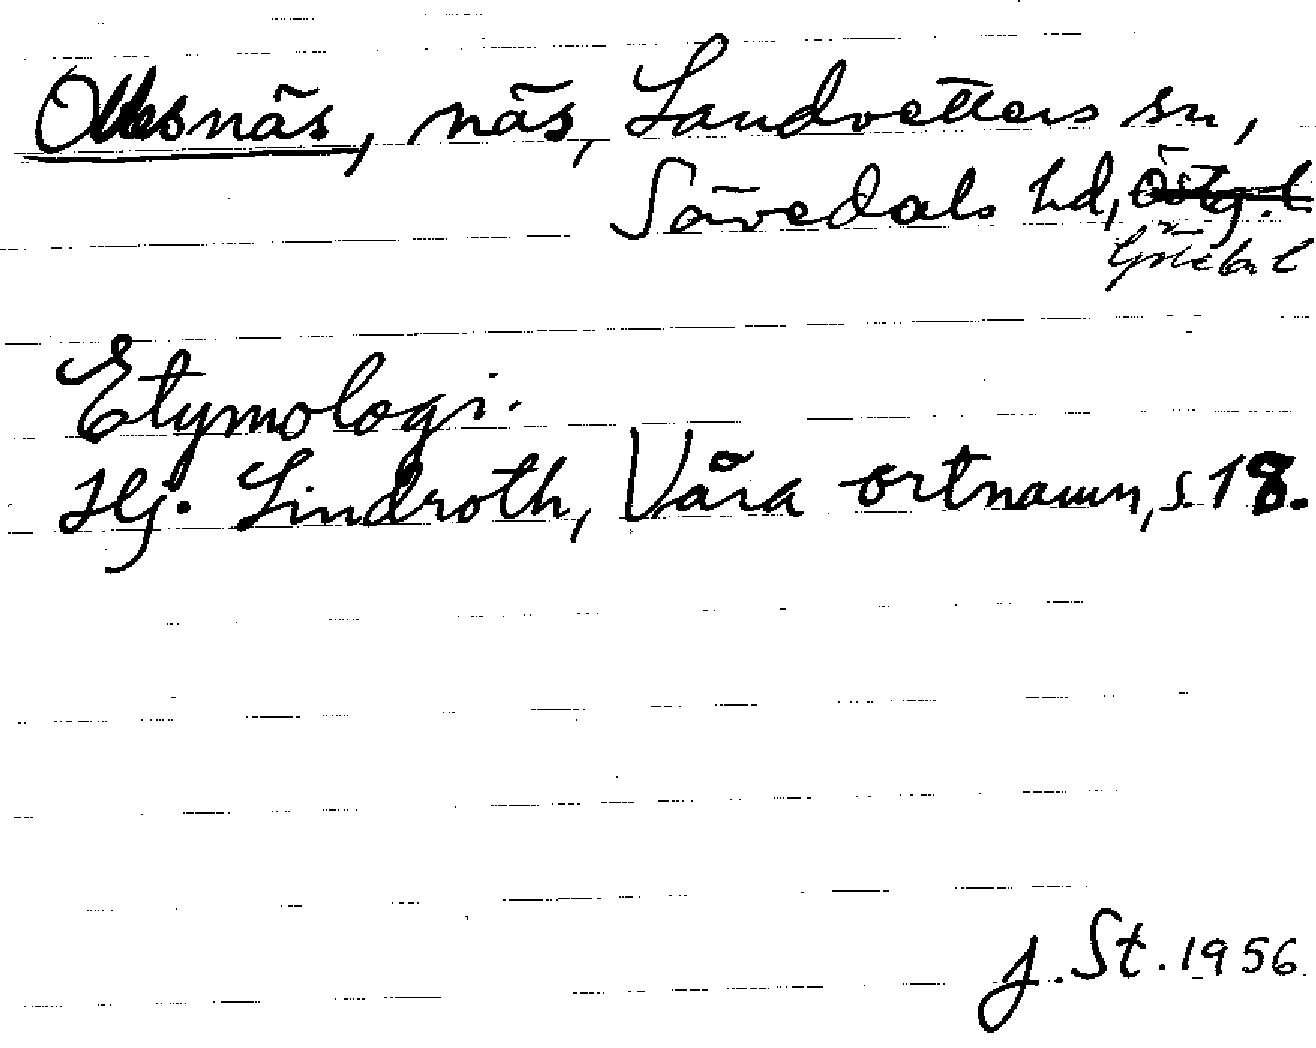 Ollesnäs, näs, Landvetters sn,
Sävedals hd, Östg. l
Göteb. l
Etymologi.
Hj. Lindroth, Våra ortnamn, s. 18.
J. St. 1956